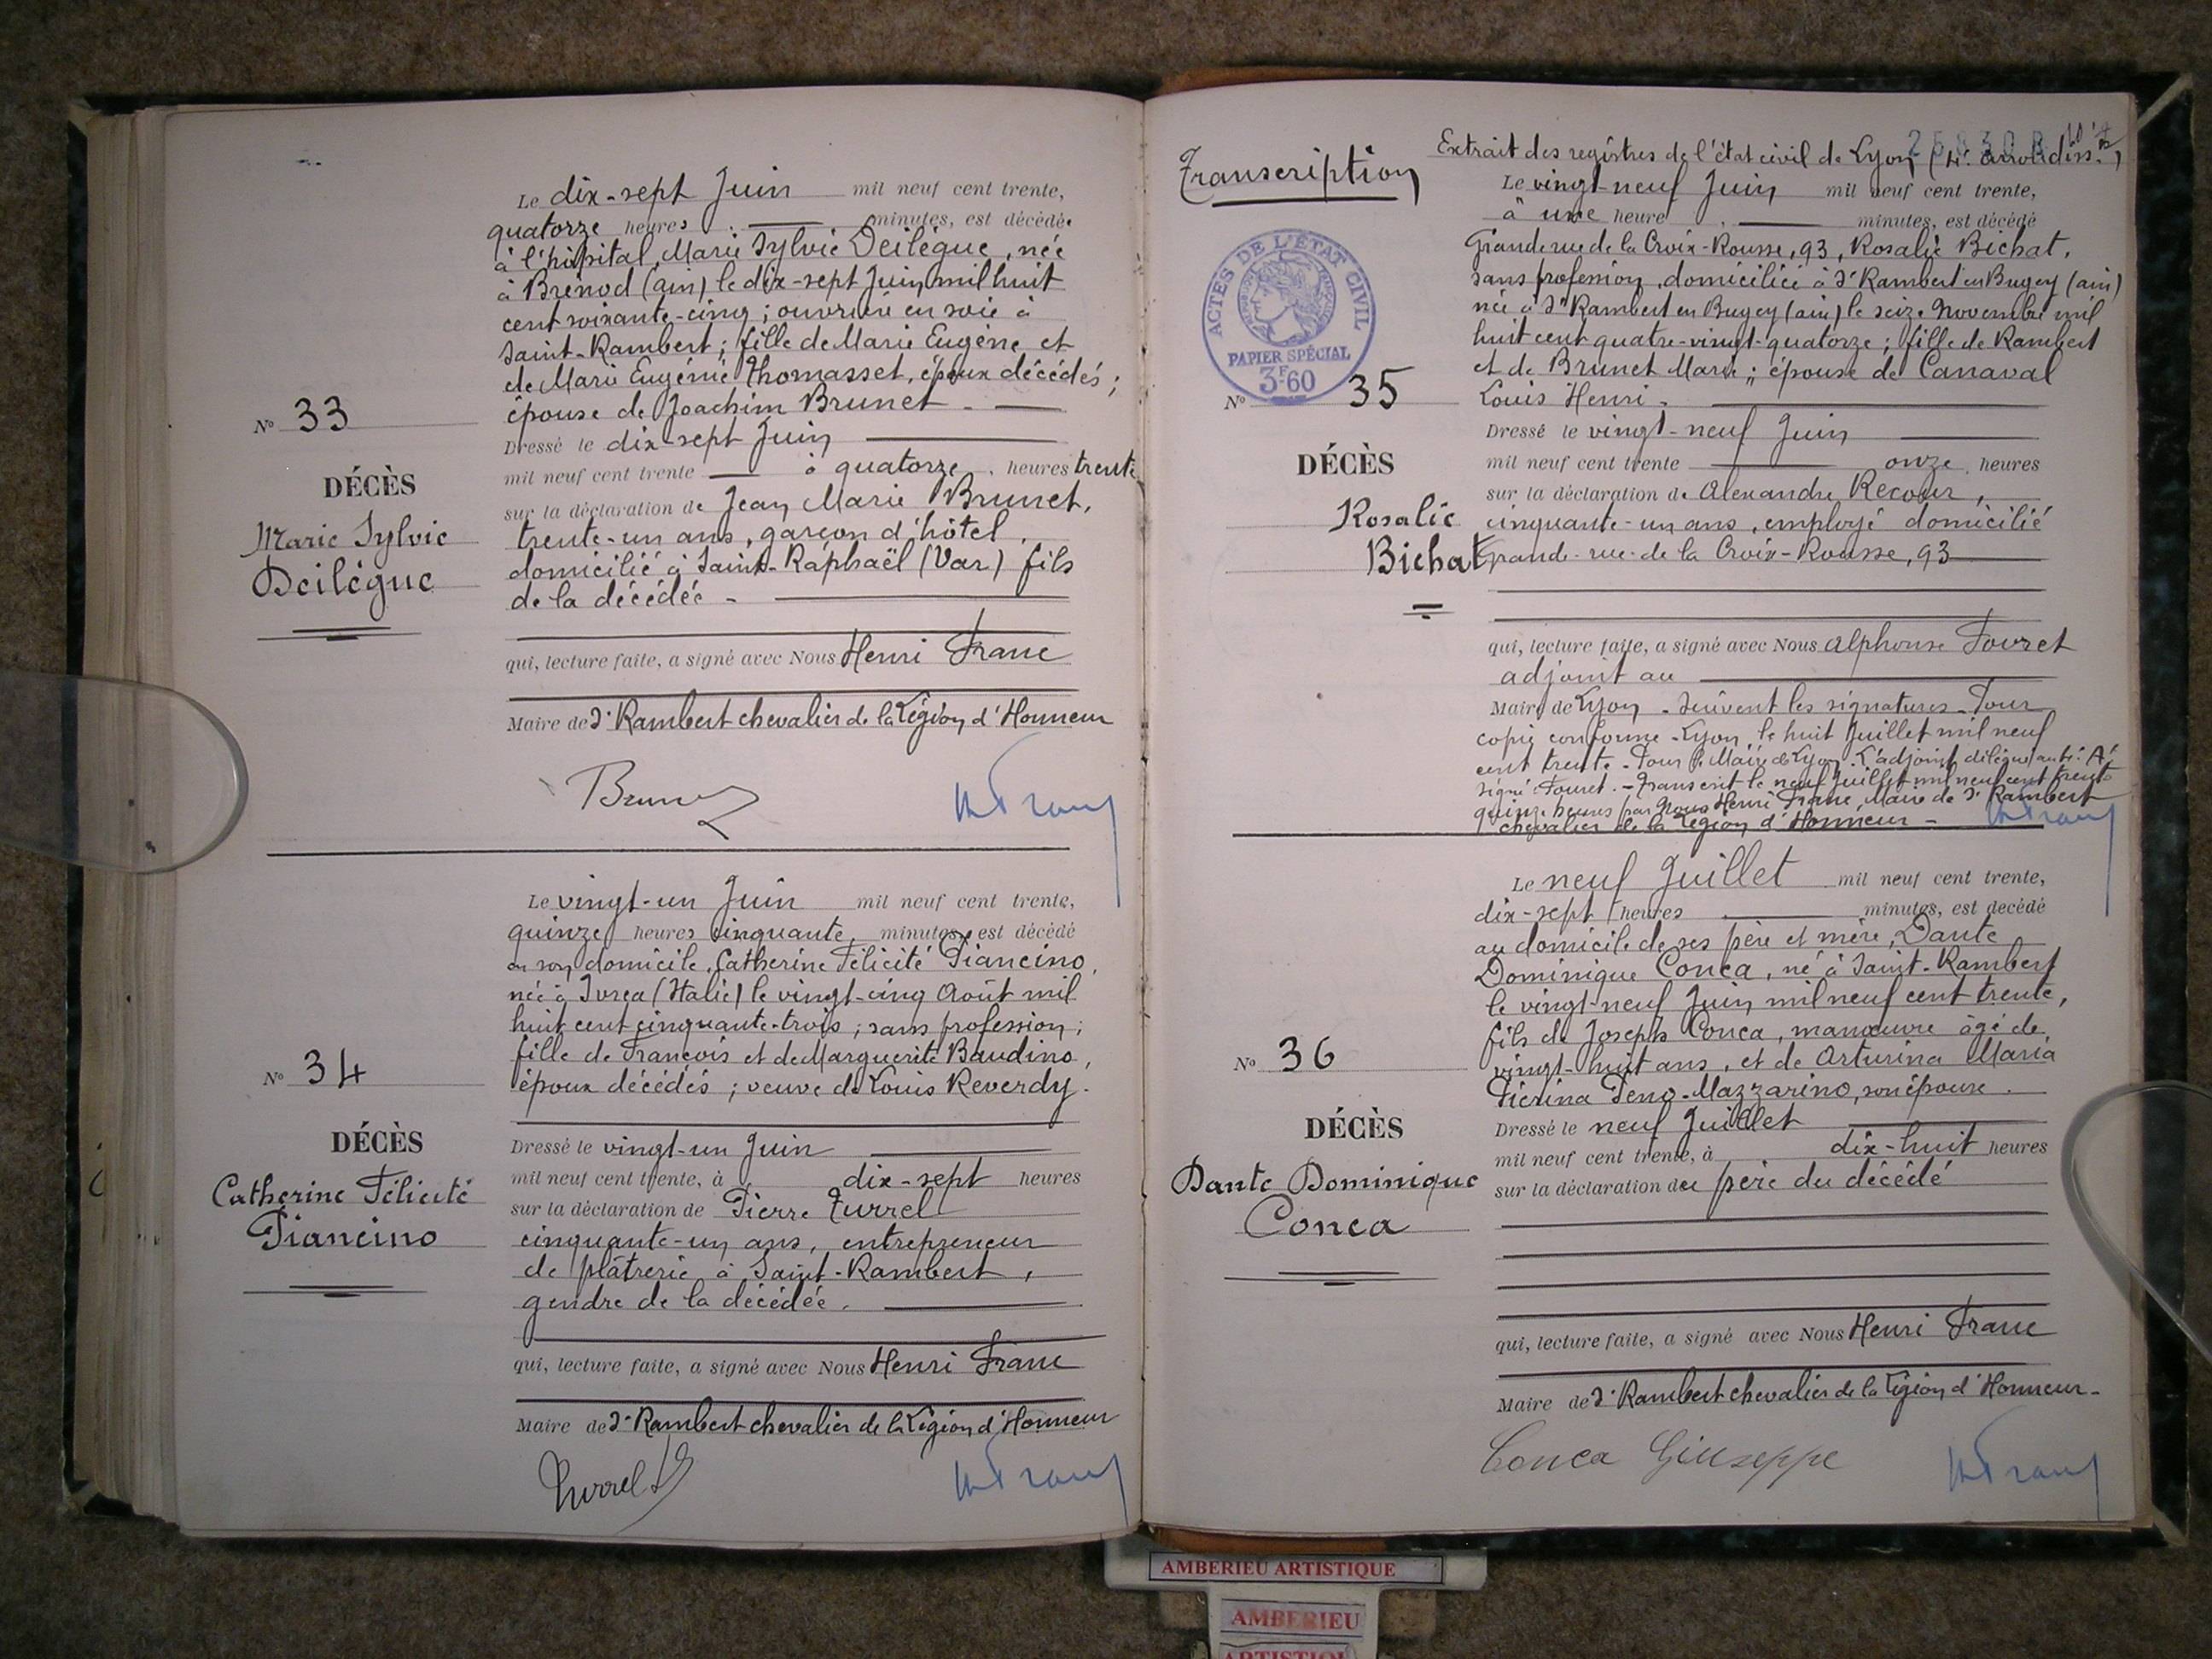 Le dix-sept Juin mil neuf cent trente,
quatorze heures minutes, est décédée
à l'hôpital, Marie Sylvie Deilègue, née
à Brénod (Ain) le dix-sept Juin mil huit
cent soixante-cinq ; ouvrière en soie à
Saint-Rambert ; fille de Marie Eugène et
de Marie Eugénie Thomasset, époux décédés ;
épouse de Joachim Brunet -
N° 33
DÉCÈS
Marie Sylvie
Deilègue
Dressé le dix-sept Juin
mil neuf cent trente à quatorze heures trente
sur la déclaration de Jean Marie Brunet,
trente-un ans, garçon d'hôtel,
domicilié à Saint-Raphaël (Var) fils
de la décédée -
qui, lecture faite, a signé avec Nous Henri Franc
Maire de St Rambert chevalier de la Légion d'Honneur
Brunet
H. Franc
Le vingt-un Juin mil neuf cent trente,
quinze heures cinquante minutes, est décédé
en son domicile, Catherine Félicité Piancino,
née à Ivrea (Italie) le vingt-cinq Août mil
huit cent cinquante-trois ; sans profession ;
fille de François et de Marguerite Baudino,
époux décédés ; veuve de Louis Reverdy.
N° 34
DÉCÈS
Catherine Félicité
Piancino
Dressé le vingt-un Juin
mil neuf cent trente, à dix-sept heures
sur la déclaration de Pierre Turrel
cinquante-un ans, entrepreneur
de plâtrerie à Saint-Rambert,
gendre de la décédée.
qui, lecture faite, a signé avec Nous Henri Franc
Maire de St Rambert chevalier de la Légion d'Honneur
Turrel
H. Franc
Transcription
Extrait des registres de l'état civil de Lyon (4e arrondiss.t)
Le vingt-neuf Juin mil neuf cent trente,
à une heure minutes, est décédé
Grande rue de la Croix-Rousse, 93, Rosalie Bichat,
sans profession, domiciliée à St Rambert en Bugey (Ain)
née à St Rambert en Bugey (Ain) le seize Novembre mil
huit cent quatre-vingt-quatorze ; fille de Rambert
et de Brunet Marie ; épouse de Canaval
Louis Henri -
ACTES DE L'ÉTAT CIVIL
PAPIER SPÉCIAL
3F.60
N° 35
DÉCÈS
Rosalie
Bichat
Dressé le vingt-neuf Juin
mil neuf cent trente onze heures
sur la déclaration de Alexandre Recour,
cinquante-un ans, employé domicilié
Grande-rue-de la Croix-Rousse, 93
qui, lecture faite, a signé avec Nous Alphonse Fouret
adjoint au
Maire de Lyon - Suivent les signatures - Pour
copie conforme - Lyon, le huit Juillet mil neuf
cent trente - Pour le Maire de Lyon - L'adjoint délégué
signé : Fouret. - Transcrit le neuf Juillet mil neuf cent trente
quinze heures par Nous Henri Franc, Maire de St Rambert
chevalier de la Légion d'Honneur -
H. Franc
Le neuf Juillet mil neuf cent trente,
dix-sept heures minutes, est décédé
au domicile de ses père et mère, Dante
Dominique Conca, né à Saint-Rambert
le vingt-neuf Juin mil neuf cent trente,
fils de Joseph Conca, manœuvre âgé de
vingt-huit ans, et de Arturina Maria
Pierina Peno-Mazzarino, son épouse.
N° 36
DÉCÈS
Dante Dominique
Conca
Dressé le neuf Juillet
mil neuf cent trente, à dix-huit heures
sur la déclaration du père du décédé
qui, lecture faite, a signé avec Nous Henri Franc
Maire de St Rambert chevalier de la Légion d'Honneur -
Conca Giuseppe
H. Franc
AMBERIEU ARTISTIQUE
AMBERIEU
ARTISTIQUE